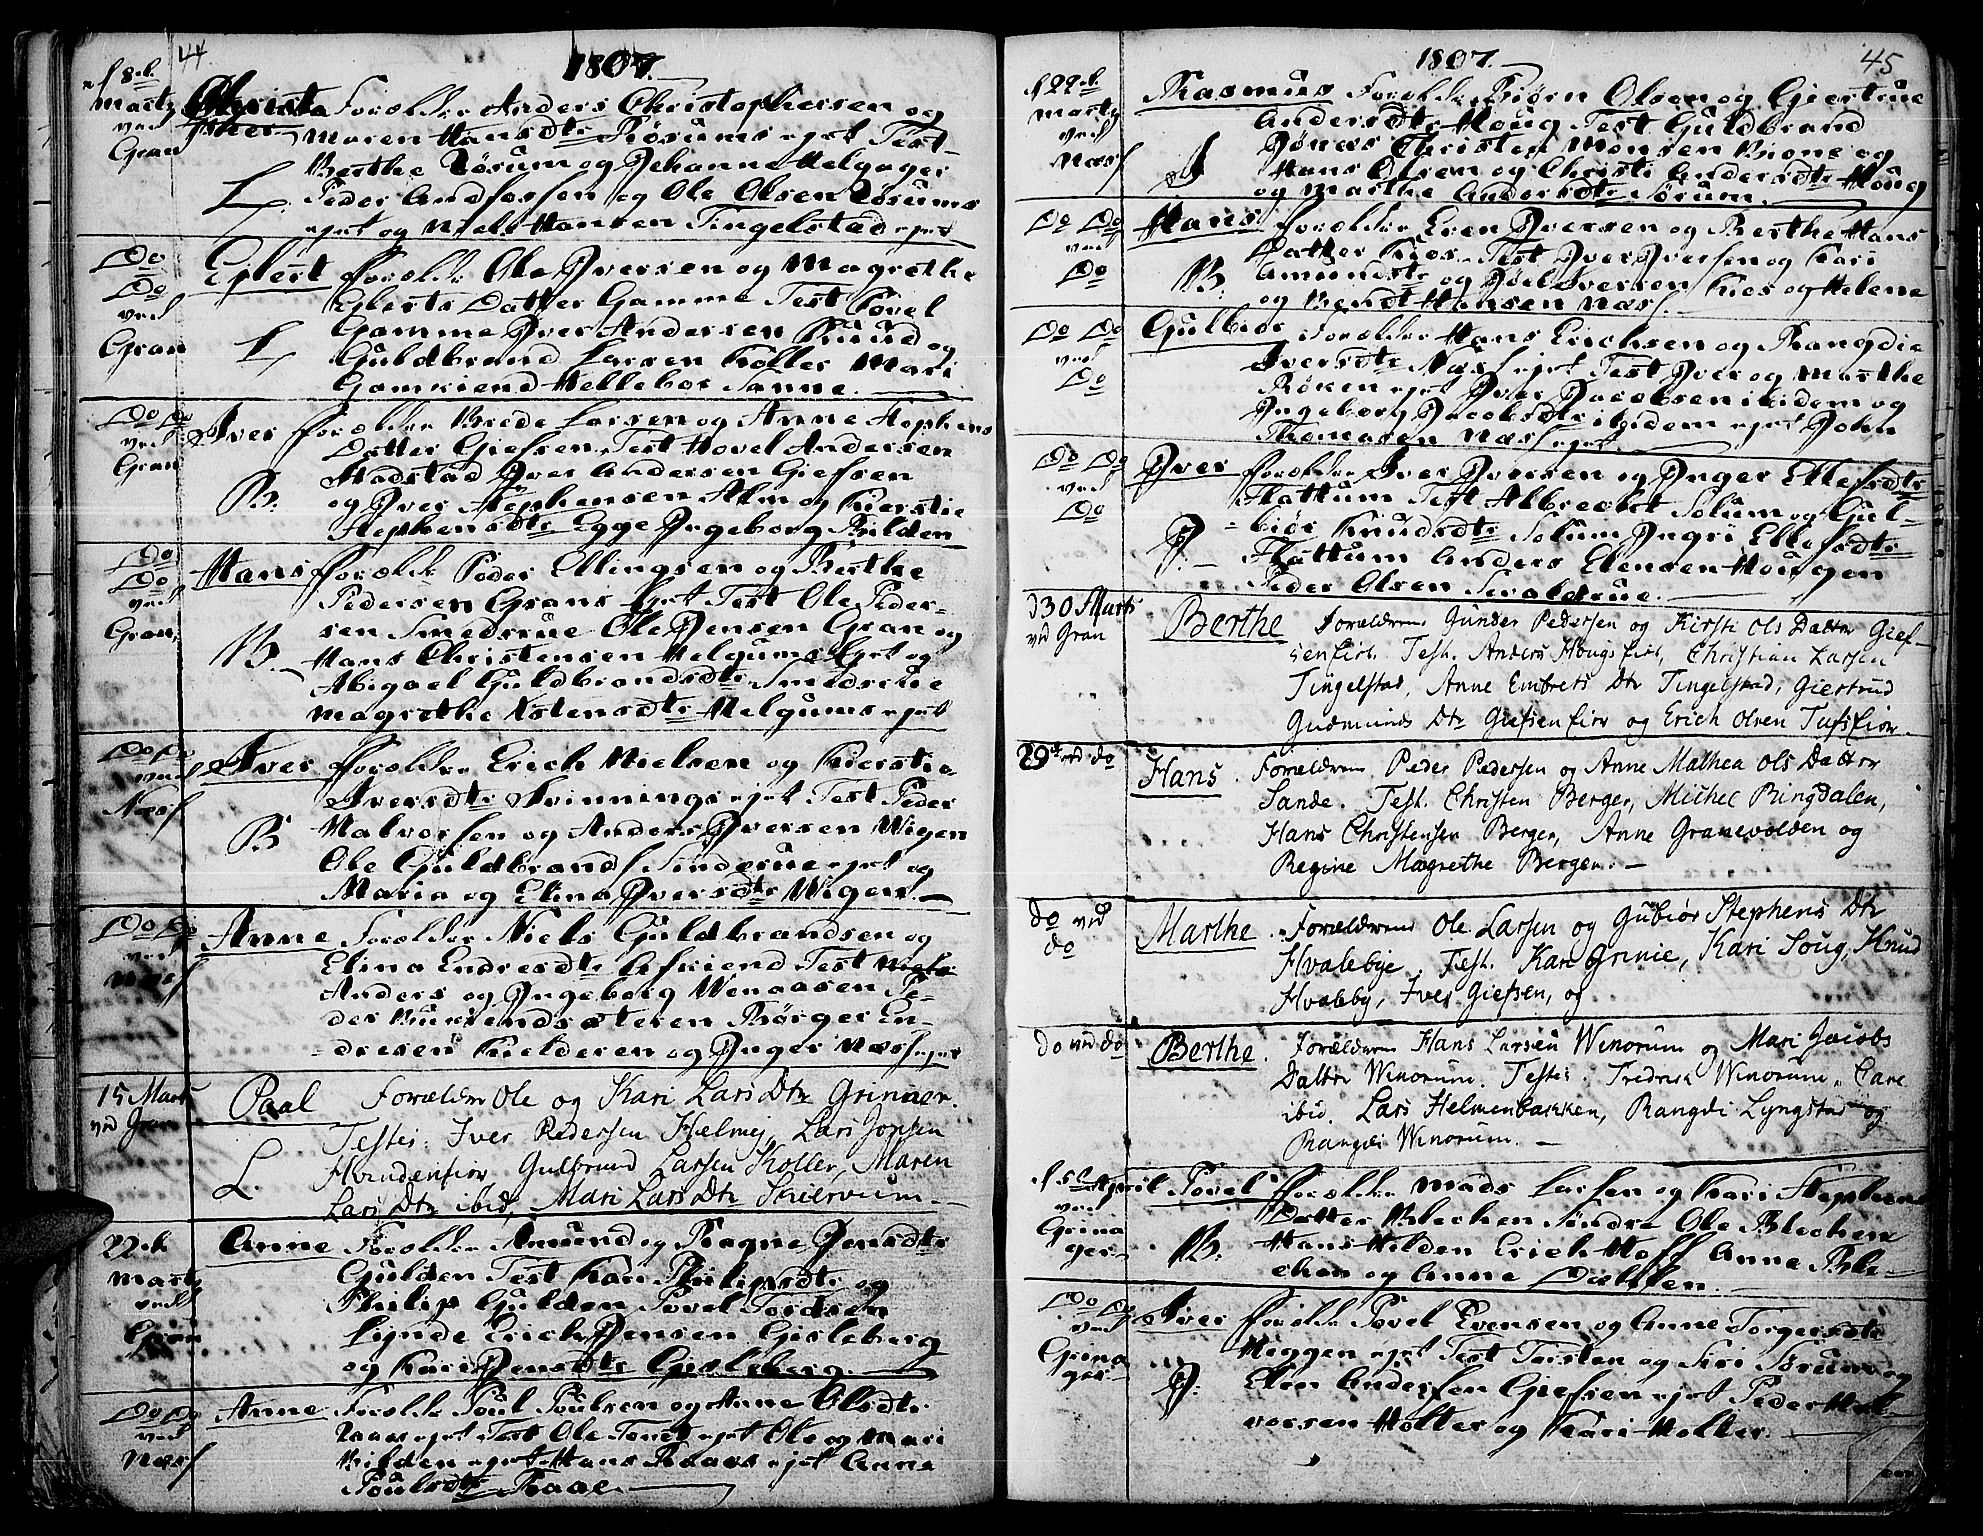 44
1807.
d 8de Martz ved Gran
Christopher Forældre Anders Christophersen og
Maren Hansdtr Rösums ejet Test
Berthe Rösum og Johanne Helgager
L. Peder Andersen og Ole Olsen Rösums
ejet og Niels Hansen Tingelstad ejet
Do Do ved Gran
Egbert Forældre Ole Iversen og Magrethe
Egberts Datter Gamme Test Povel
Gamme Iver Andersen Knud og
L Guldbrand Larsen Koller Mari
Gamkiend Hellebor Sanne.
Do Do ved Gran
Iver Forældre Brede Larsen og Anne Stephens
Datter Giefsen Test Hovel Andersen
Stadstad Iver Andersen Giefsen
B. og Iver Stephensen Alm og Kierstie
Stephensdtr Egge Ingeborg Bilden
Do Do ved Gran
Hans Forældre Peder Ellingsen og Berthe
Pedersen Grans ejet Test Ole Peder-
sen Smedsrue Ole Jensen Gran og
B. Hans Christensen Helgums ejet og
Abigael Guldbrandsdtr Smedsrue
Magrethe Ostensdtr Helgums ejet
Do Do ved Næss
Iver Forældre Erich Nielsen og Kierstie
Iversdtr Svinnings ejet Test Peder
B Halvorsen og Anders Iversen Wigen
Ole Guldbrands Sünderue ejet og
Maria og Elina Iversdtr Wigen.
Do Do ved Næss
Anne Forældre Niels Guldbrandsen og
Elina Endresdtr Test
Anders og Ingeborg Wenaasen Pe-
der Börger En-
dresen Kielderen og Inger Næss ejet
15 Marts ved Gran
Paal Forældre Ole og Kari Lars Dtr Grinaer.
Testes: Iver Pedersen Helmej, Lars Jonsen
L. Hvindeneier Gulbrand Larsen Koller, Maren
Lars Dtr ibid, Mari Lars Dtr
22de Martz ved Gran
Anne Forældre Amund og Ragne Jensdtr
Gulden Test Kari Philipsdtr og
Philip Gulden Povel Tordsen
Lynde Erich Jensen Gisleberg
og Kari Jensdtr Gisleberg.
Do Do ved Næss
Anne Forældre Poul Poulsen og Anne Olsdtr
Raas ejet Test Ole ejet Ole og Mari
Bilden ejet Hans Raaes ejet Anne
Poulsdtr Raae.
1807
45
d 22de Martz ved Næss
Rasmus Forældre Biörn Olsen og Giertrue
Andersdtr Houg Test Guldbrand
Jönes Christen Monsen Bione og
Hans Olsen og Christi Andersdtr Houg
og Marthe Andersdtr Sörum.
Do Do ved Do
Hans Forældre Even Iversen og Berthe Hans
Datter Kios Test Iver Iversen og Kari
B. Amundsdtr og Joel Iversen Kios og Helene
og Berndt Hansen Næss.
Do Do ved Do
Gulbior Forældre Hans Erichsen og Rangdie
Iversdtr Næss ejet Test Iver og Marthe
Röken ejet Iver Jacobsen ibidem og
Ingeborg Jacobsdtr ibidem ejet John
Thomasen Næss ejet
Do Do ved Do
Iver Forældre Iver Iversen og Inger Ellefsdtr
Flattum Test Albrecht Solum og Gul-
biör Knudsdtr Solum Ingri Ellefsdtr
Flattum Anders Ellensen Hougen
Peder Olsen
d 30 Marts ved Gran
Berthe Forældrene Gunder Pedersen og Kirsti Ols Datter Gief-
seneier. Test. Anders Hougseier, Christian Larsen
Tingelstad, Anne Embrets Dtr Tingelstad, Giertrud
Gudmunds Dtr Giefseneier og Erich Olsen Tufseier.
29de ved do
Hans. Forældrene Peder Pedersen og Anne Mathea Ols Datter
Sande. Test. Christen Berger, Michel Ringdalen,
Hans Christensen Berger, Anne Granevolden og
Regine Magrethe Bergen.
do ved do
Marthe. Forældrene Ole Larsen og Gubiör Stephens Dtr
Hvalebye. Test. Kari Grinie, Kari Soug, Knud
Hvaleby, Iver Giefsen, og
do ved do
Berthe. Forældrene Hans Larsen Winorum og Mari Jacobs
Datter Winorum. Testes. Fredrich Winorum. Care
ibid. Lars Helmenbakken, Rangdi Lyngstad og
Rangdi Winorum.
d 5te April ved Grinager
Povel Forældre Mads Larsen og Kari Stephens
Datter Blechen Sindre Ole Blechen
B. Hans Hilden Erich Hoff Anne Ble-
chen og Anne Dahlen.
Do Do ved Grinager
Iver Forældre Povel Evensen og Anne Torgersdtr
Heggen ejet Test Torsten og Siri Sörum og
Elen Andersen Giefsen ejet Peder Hal-
vorsen Holter og Kari Holter.